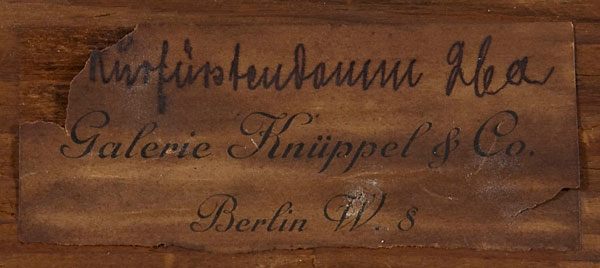 Kurfürstendamm 26a
Galerie Knüppel & Co.
Berlin W. 8